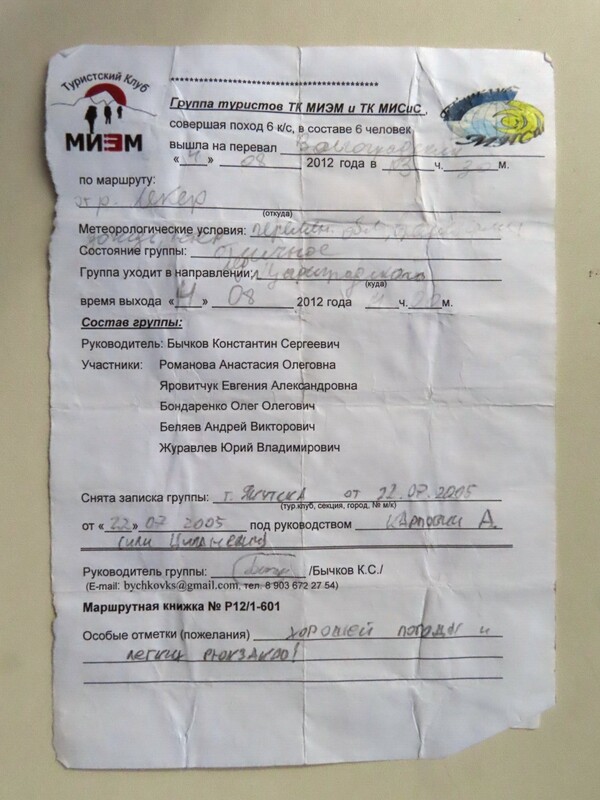 Туристский Клуб
МИЭМ
**********************************************
Группа туристов ТК МИЭМ и ТК МИСиС ,
совершая поход 6 к/с, в составе 6 человек
вышла на перевал
« » 08 2012 года в ч. м.
по маршруту:
(откуда)
Метеорологические условия:
Состояние группы:
Группа уходит в направлении:
(куда)
время выхода « » 08 2012 года ч. м.
Состав группы:
Руководитель: Бычков Константин Сергеевич
Участники: Романова Анастасия Олеговна
Яровитчук Евгения Александровна
Бондаренко Олег Олегович
Беляев Андрей Викторович
Журавлев Юрий Владимирович
Снята записка группы: г. Якутска от 22.07.2005
(тур.клуб, секция, город, № м/к)
от « 22 » 07 2005 под руководством Карповки А.
(или
Руководитель группы: /Бычков К.С./
(E-mail: bychkovks@gmail.com, тел. 8 903 672 27 54)
Маршрутная книжка № Р12/1-601
Особые отметки (пожелания) хорошей погоды и
легких рюкзаков!